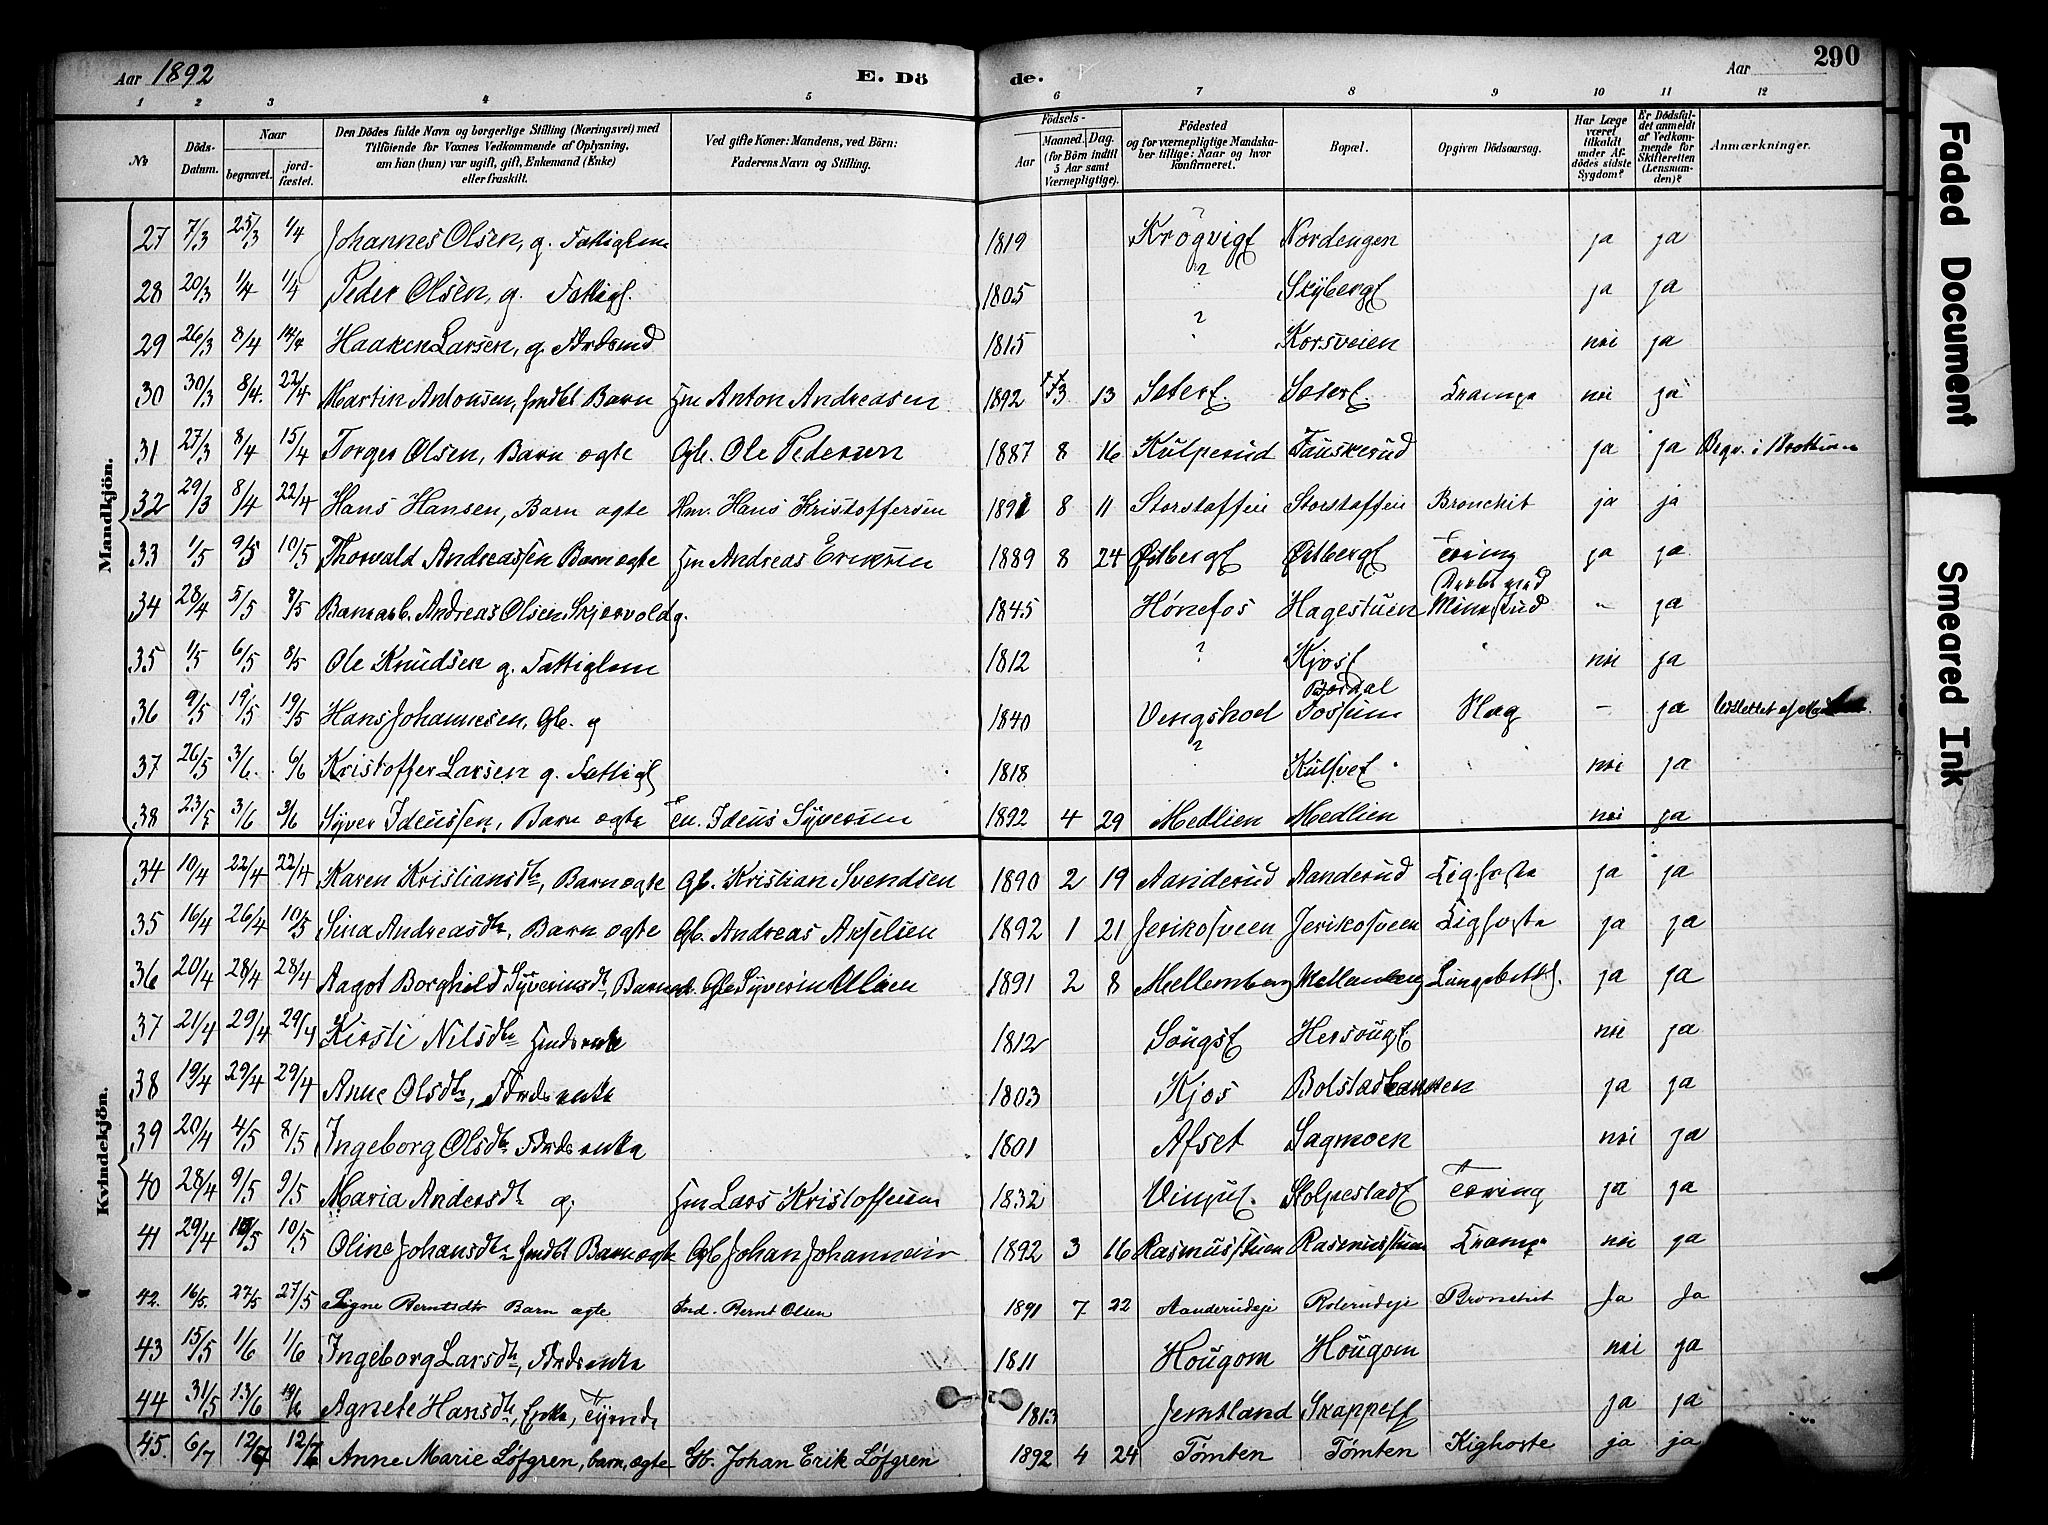 Aar 1892 E. Dö de. Aar 290
1 2 3 4 5 6 7 8 9 10 11 12
No
Döds-Datum.
Naar
begravet.
jord-fæstet.
Den Dödes fulde Navn og borgerlige Stilling (Næringsvei) med
Tilföiende for Voxnes Vedkommende af Oplysning,
om han (hun) var ugift, gift, Enkemand (Enke)
eller fraskilt.
Ved gifte Koner: Mandens, ved Börn:
Faderens Navn og Stilling.
Födsels-
Aar
Maaned. Dag.
(for Börn indtil
5 Aar samt
Værnepligtige).
Födested
og for værnepligtige Mandska-
ber tillige: Naar og hvor
konfirmeret.
Bopæl.
Opgiven Dödsaarsag.
Har Læge
været
tilkaldt
under Af-
dödes sidste
Sygdom?
Er Dödsfal-
det anmeldt
af Vedkom-
mende for
Skifteretten
(Lensman-
den)?
Anmærkninger.
Mandkjön.
27 7/3 25/3 1/4 Johannes Olsen, g. Fattiglem 1819 Krogvigf Nordengen ja ja
28 20/3 1/4 1/4 Peder Olsen, g. Fattigl. 1805 ? Skybergf ja ja
29 26/3 8/4 14/4 Haaken Larsen, g. 1815 ? Korsveien nei ja
30 30/3 8/4 22/4 Martin Antonsen, Barn Hm Anton Andreasen 1892 3 13 Seterf. Seterf. Krampe nei ja
31 27/3 8/4 15/4 Torger Olsen, Barn ægte Gbr. Ole Pedersen 1887 8 16 Kulperud Fauskerud ja ja Begr. i Brottum
32 29/3 8/4 22/4 Hans Hansen, Barn ægte Hm. Hans Kristoffersen 1891 8 11 Storstaffen Storstaffen Bronchit ja ja
33 1/5 9/5 10/5 Thorvald Andreassen Barn ægte Hm Andreas Eriksen 1889 8 24 Østbergf Østbergf Tæring ja ja
34 28/4 5/5 8/5 Banearb. Andreas Olsen Skjervold g. 1845 Hønefos Hagestuen Dræbt ved Mineskud - ja
35 1/5 6/5 8/5 Ole Knudsen g. Fattiglem 1812 ? Kjosf nei ja
36 9/5 19/5 19/5 Hans Johannesen, Gb. g 1840 Vengshoel Bærdal Fossum Slag - ja
37 26/5 3/6. 6/6 Kristoffer Larsen g. Fattigl 1818 ? Kulsvef nei ja
38 23/5 3/6 3/6 Syver Ideussen, Barn ægte En. Ideus Syversen 1892 4 29 Medlien Medlien nei ja
Kvindekjön.
34 10/4 22/4 22/4 Karen Kristiansdtr, Barn ægte Gb. Kristian Svendsen 1890 2 19 Aanderud Aanderud Kighoste ja ja
35 16/4 26/4 10/5 Sina Andreasdtr, Barn ægte Gb. Andreas Akselsen 1892 1 21 Jerikosveen Jerikosveen Kighoste ja ja
36 20/4 28/4 28/4 Aagot Borghild Syverinsdtr, Barn æ. Gb Syverin Olsen 1891 2 8 Mellemberg Mellemberg Lungebet. ja ja
37 21/4 29/4 29/4 Kirsti Nilsdtr enke 1812 Sougsf Hersougf nei ja
38 19/4 29/4 29/4 Anne Olsdtr, enke 1803 Kjos Bolstadbakken ja ja
39 20/4 4/5 8/5 Ingeborg Olsdtr enke 1801 Afset Sagmoen nei ja
40 28/4 9/5 9/5 Maria Andersdtr g. Hm Lars Kristoffersen 1832 Vinjuf. Stolpestadf Tæring ja ja
41 29/4 10/5 10/5 Oline Johansdtr Barn ægte Gb Johan Johannesen 1892 3 16 Rasmusstuen Rasmusstuen Krampe nei ja
42. 16/5. 27/5 27/5 Signe Berntsdtr Barn ægte Ind. Bernt Olsen 1891 7 22 Aanderudeje Rolerudeje Bronchit Ja Ja
43 15/5 1/6 1/6 Ingeborg Larsdtr, enke 1811 Hougom Hougom nei ja
44 31/5 13/6 19/6 Agnete Hansdtr, Enke, 1813 Jemtland Snappeff ja ja
45. 6/7 12/7 12/7 Anne Marie Löfgren, barn, ægte Gb. Johan Erik Löfgren 1892 4 24 Tömten Tömten Kighoste ja ja
Faded Document
Smeared Ink